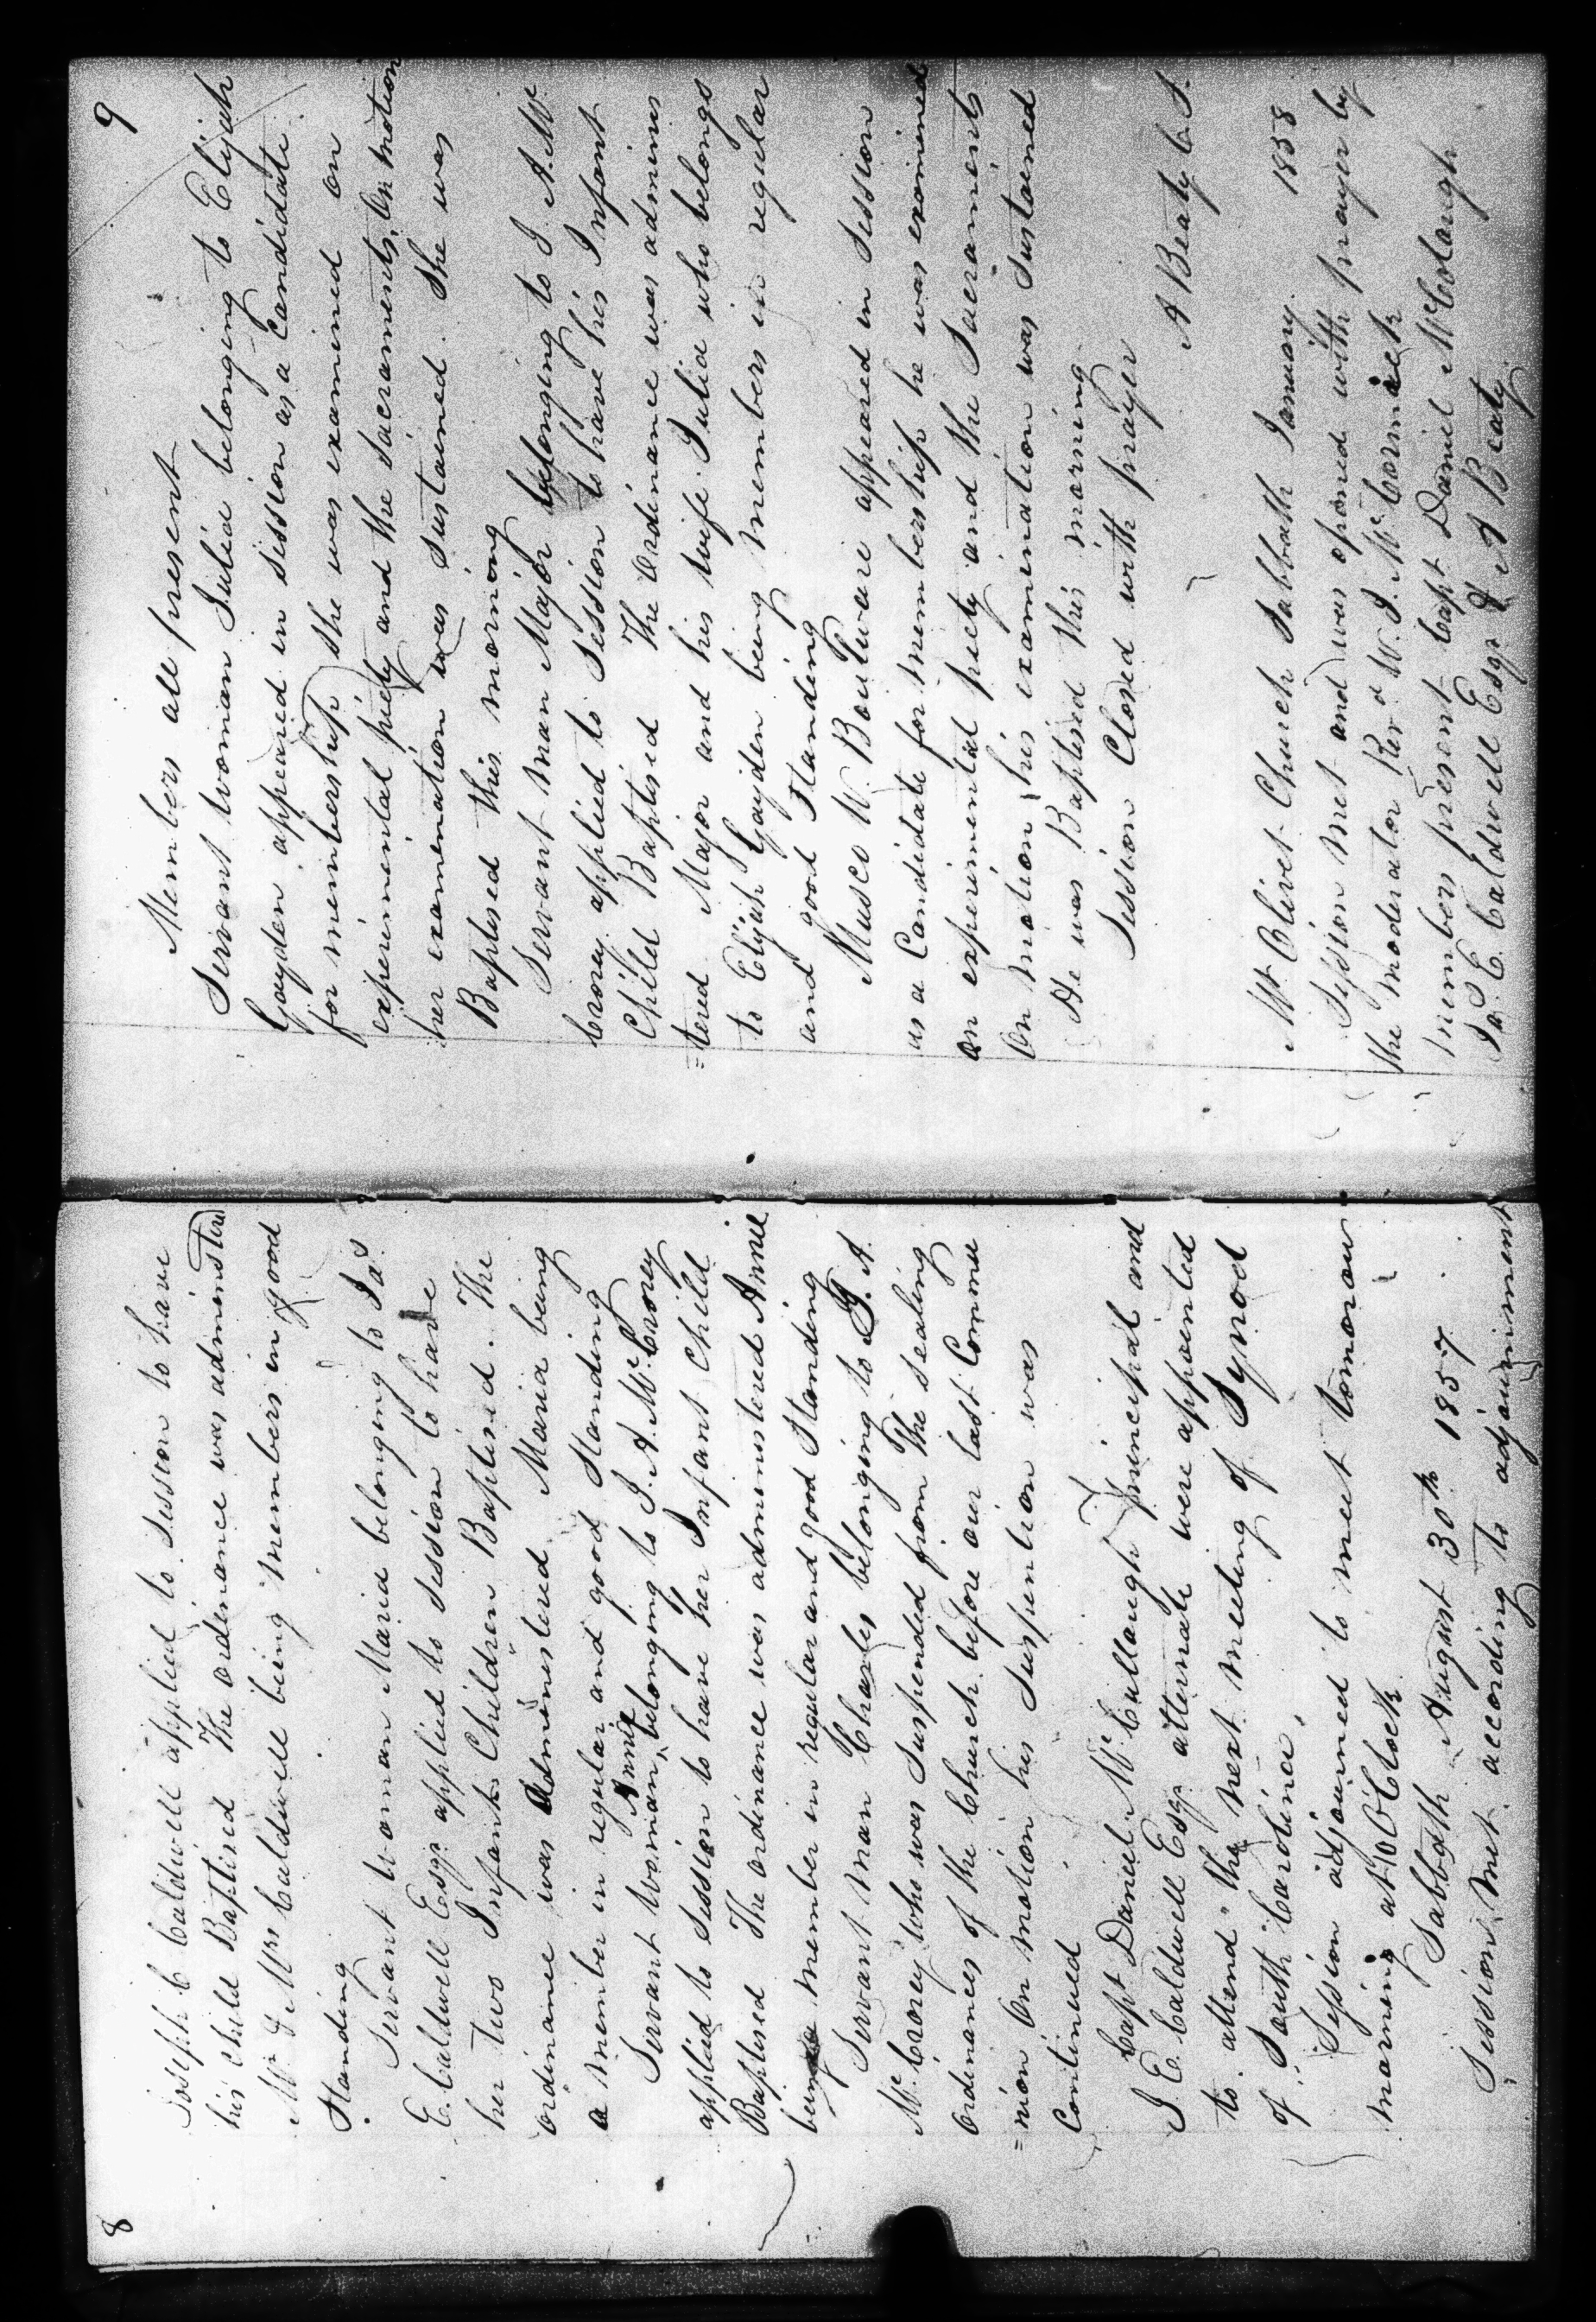 8
Joseph C Caldwell applied to Session to have
his child Baptised The ordenance was administre
Mr & Mrs Caldwell being members in good
Standing
Servant woman Maria belonging to Jas
E. Caldwell Esqr applied to session to have
her two Infant Children Baptised. The
ordinance was administered Maria being
a member in regular and good Standing
Servant woman Annie belonging to J. A McCrorey
applied to Session to have her Infant Child
Baptised The ordinance was administered Annie
being a member in regular and good Standing
Servant man Charles belonging to J. A.
McCrorey who was Suspended from The sealing
ordinances of the Church before our last Commu
=nion On motion his Suspention was
Continued
Capt Daniel McCullaugh principal and
J E. Caldwell Esqr alternate were appointed
to attend the next meeting of Synod
of South Carolina
Session adjourned to meet tomorow
morning at 10 O'Clock
Sabbath August 30th 1857
Session met according to adjournment
9
Members all present
Servant woman Julia belonging to Elijah
Gayden appeared in session as a Candidate
for membership She was examined on
experimental piety and the Sacraments, On motion
her examination was Sustained. She was
Baptised this morning
Servant man Major belonging to J. A. Mc
Crorey applied to Session to have his Infant
Child Baptised The ordinance was adminis
=tered Major and his wife Julia who belongs
to Elijah Gayden being members in regular
and good Standing
Musco W. Boulware appeared in Session
as a Candidate for membership he was examined
on experimental piety and the Sacraments
On motion his examination was Sustained
He was Baptised this morning
Session Closed with prayer
A Beaty C. S.
Mt Olivet Church Sabbath January 1858
Session met and was opened with prayer by
the moderator Rev d W. J. McCormick
members present Capt Daniel McColaugh
Ja. E. Caldwell Esqr & A Beaty